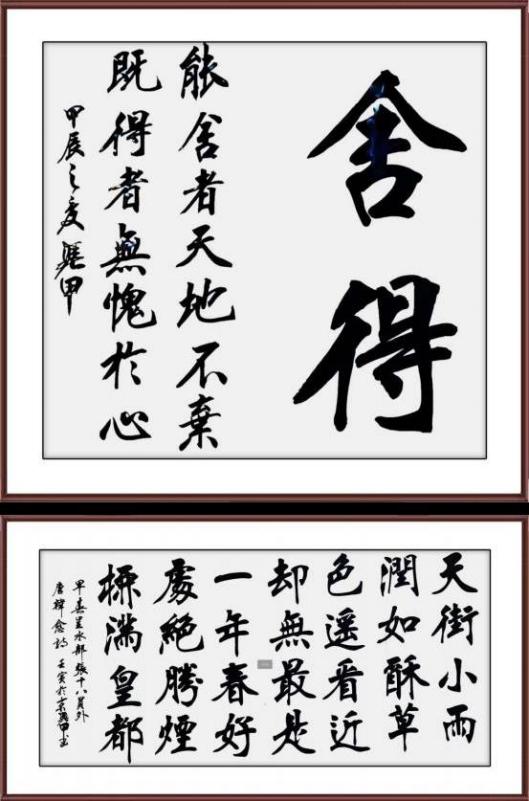 舍得
能舍者天地不棄
既得者無愧於心
甲辰之夏
天街小雨
潤如酥草
色遥看近
却無最是
一年春好
處絕勝煙
柳滿皇都
早春呈水部張十八員外
唐韓愈詩 壬寅於京